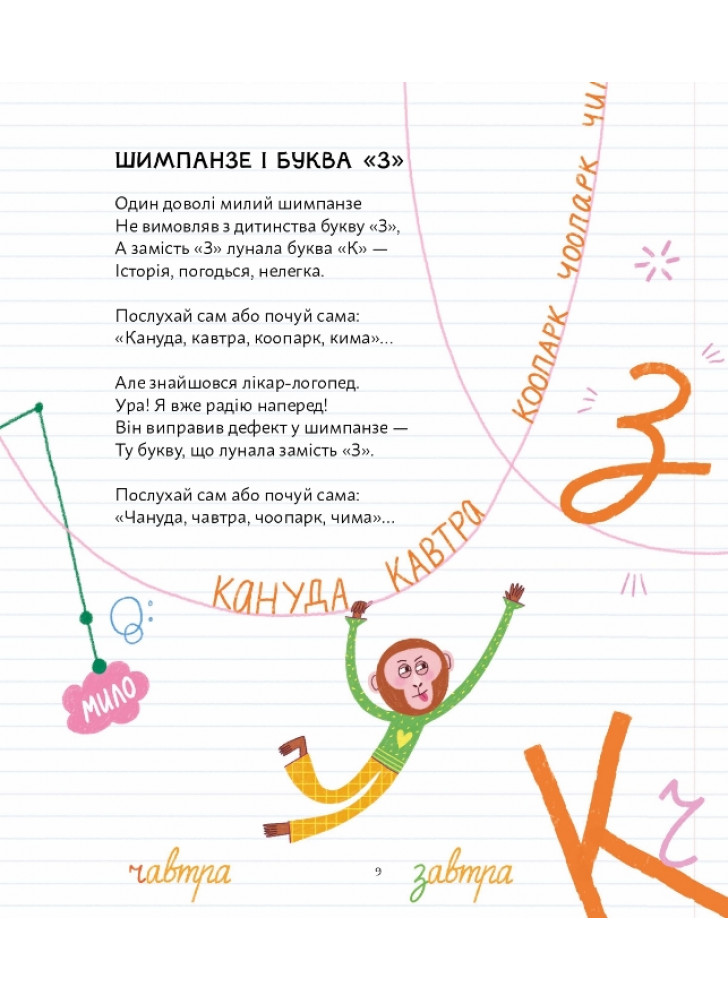 ШИМПАНЗЕ І БУКВА «З»
Один доволі милий шимпанзе
Не вимовляв з дитинства букву «З»,
А замість «З» лунала буква «К» —
Історія, погодься, нелегка.
Послухай сам або почуй сама:
«Кануда, кавтра, коопарк, кима»...
Але знайшовся лікар-логопед.
Ура! Я вже радію наперед!
Він виправив дефект у шимпанзе —
Ту букву, що лунала замість «З».
Послухай сам або почуй сама:
«Чануда, чавтра, чоопарк, чима»...
КАНУДА КАВТРА КООПАРК ЧООПАРК
З
МИЛО
К
ч
чавтра
9
завтра